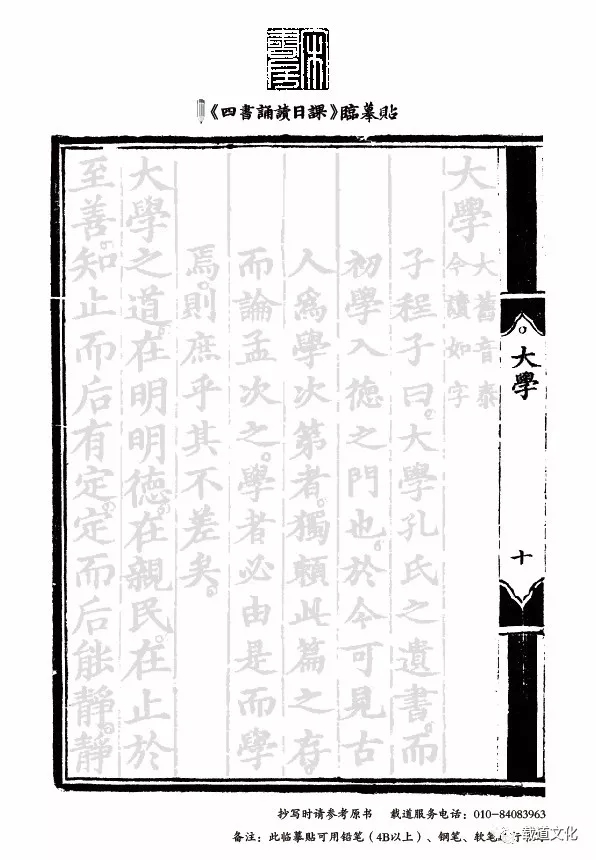 《四書誦讀日課》臨摹貼
大學
十
大學 大舊音泰
今讀如字
子程子曰。大學孔氏之遺書。而
初學入德之門也。於今可見古
人爲學次第者。獨賴此篇之存。
而論孟次之。學者必由是而學
焉。則庶乎其不差矣。
大學之道。在明明德。在親民。在止於
至善。知止而后有定。定而后能靜。靜
抄写时请参考原书 载道服务电话：010-84083963
备注：此临摹贴可用铅笔（4B以上）、钢笔、软笔
载道文化